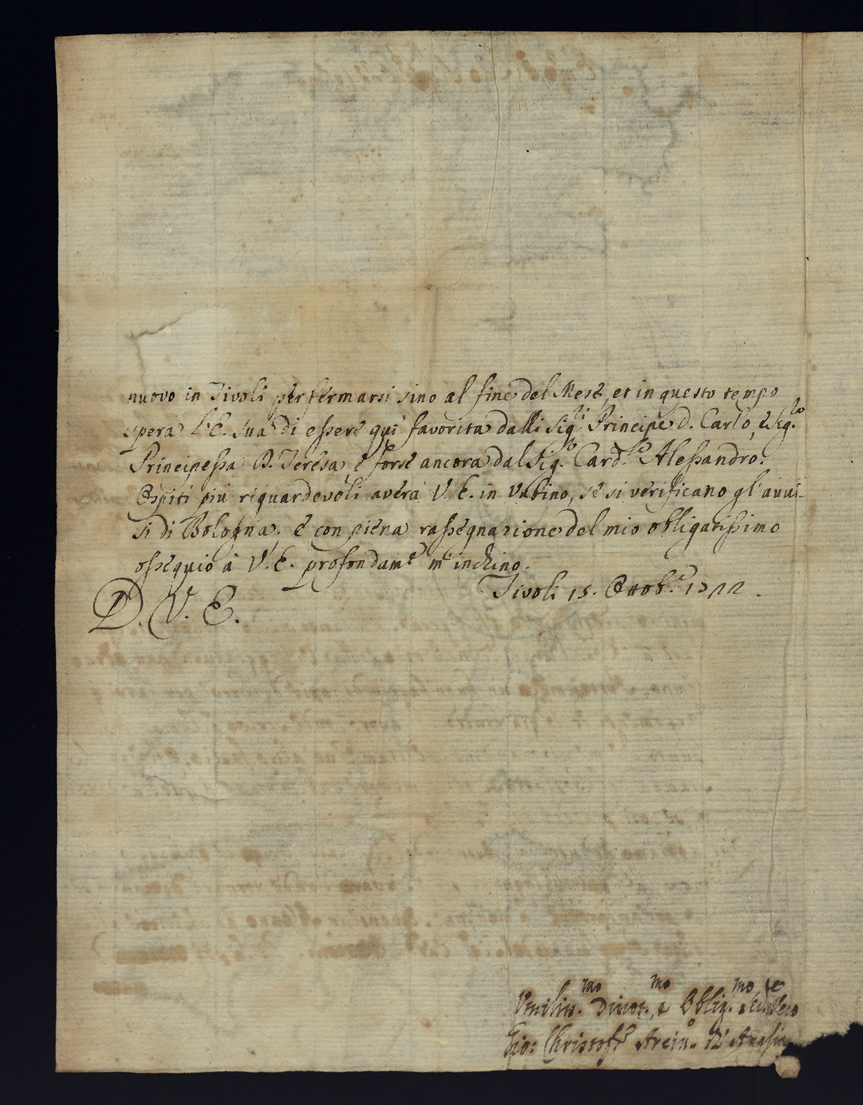 nuovo in Tivoli per fermarsi sino al fine del Mese, et in questo tempo
spera l'E. Sua di essere quì favorita dalli Sig.ri Principe D. Carlo, e Sig.ra
Principessa D. Teresa e forse ancora dal Sig.r Card.le Alessandro.
Ospiti più riguardevoli averà V. E. in Urbino, se si verificano gl'avui-
si di Bologna. e con piena rassegnazione del mio obligatissimo
ossequio à V. E. profondam.e m'inchino.
Tivoli 15. Ottob.e 1722.
D. V. E.
Umiliss.mo Divot.mo, e Oblig.mo
Gio: Christof.o Arcin.o